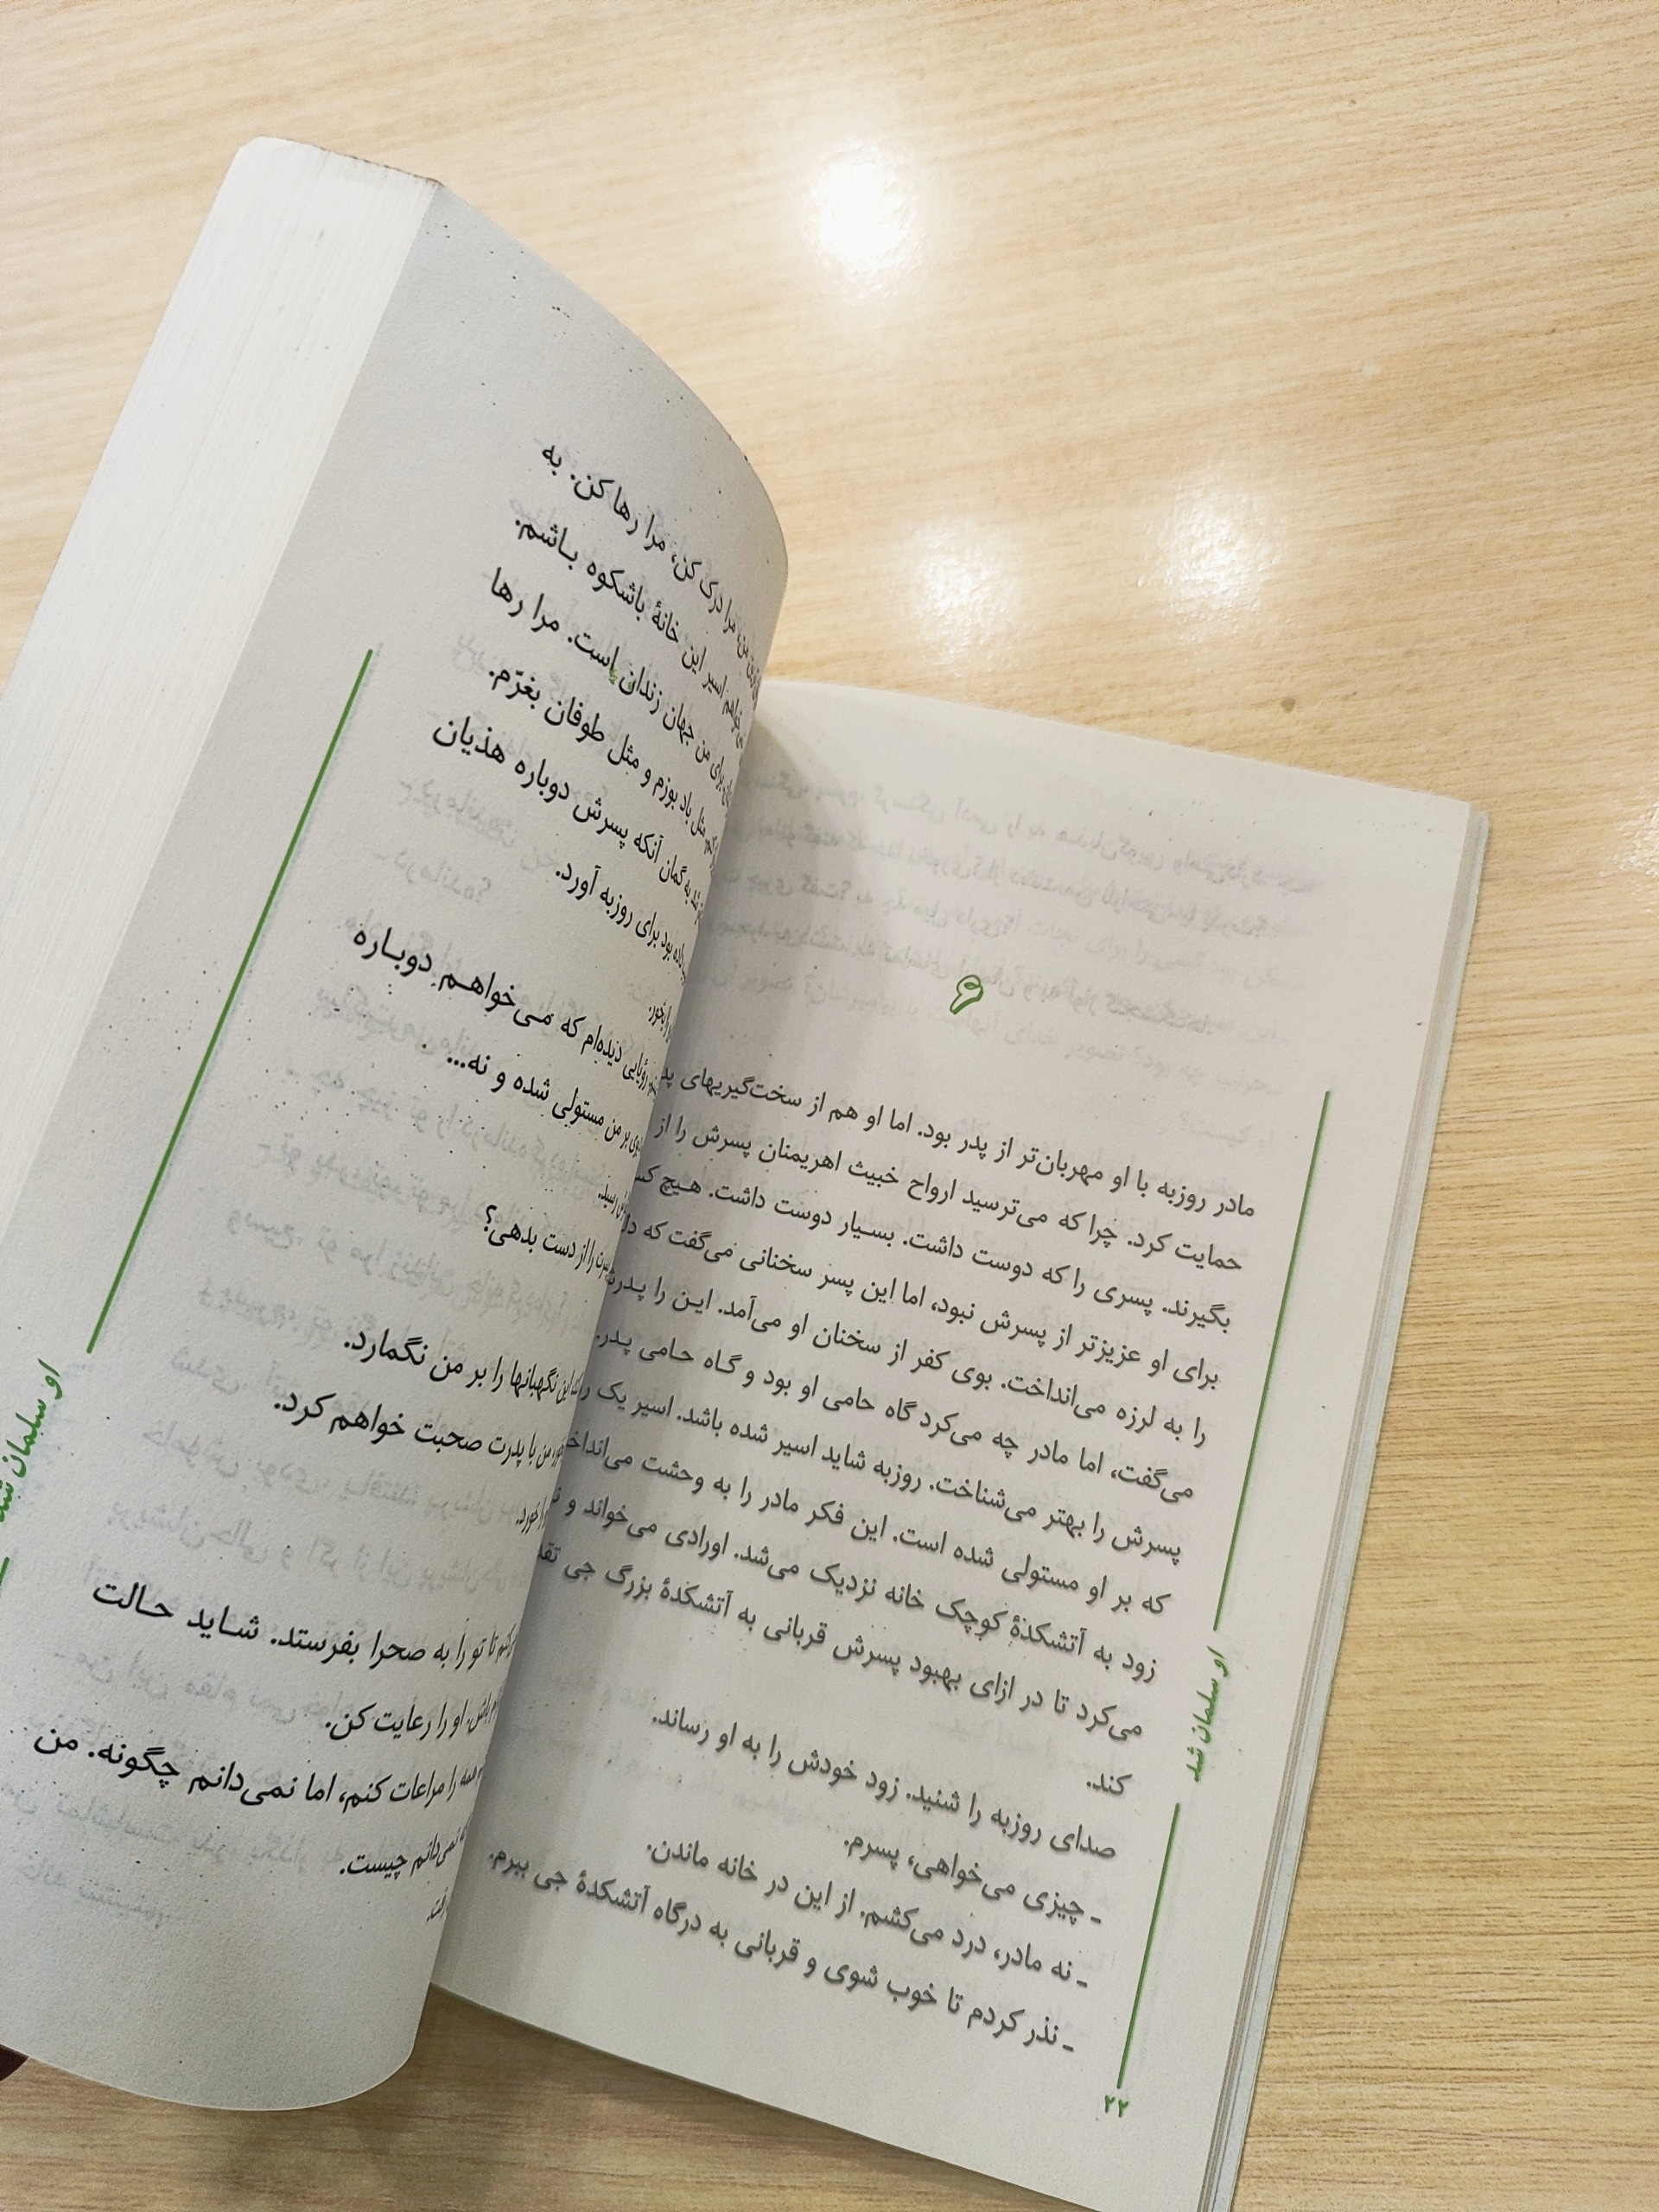 ۶
مادر روزبه با او مهربان‌تر از پدر بود. اما او هم از سخت‌گیریهای
حمایت کرد. چرا که می‌ترسید ارواح خبیث اهریمنان پسرش را از
بگیرند. پسری را که دوست داشت. بسیار دوست داشت. هیچ
برای او عزیزتر از پسرش نبود، اما این پسر سخنانی می‌گفت که
را به لرزه می‌انداخت. بوی کفر از سخنان او می‌آمد. این را
می‌گفت، اما مادر چه می‌کرد گاه حامی او بود و گاه حامی پدر.
پسرش را بهتر می‌شناخت. روزبه شاید اسیر شده باشد. اسیر یک
که بر او مستولی شده است. این فکر مادر را به وحشت
زود به آتشکدهٔ کوچک خانه نزدیک می‌شد. اورادی می‌خواند و
می‌کرد تا در ازای بهبود پسرش قربانی به آتشکدهٔ بزرگ جی
کند.
صدای روزبه را شنید. زود خودش را به او رساند.
ـ چیزی می‌خواهی، پسرم.
ـ نه مادر، درد می‌کشم. از این در خانه ماندن.
ـ نذر کردم تا خوب شوی و قربانی به درگاه آتشکدهٔ جی ببرم.
او سلمان شد
۲۲
مرا درک کن، مرا رها کن. به
اسیر این خانهٔ باشکوه باشم.
برای من جهان زندان است. مرا رها
مثل باد بوزم و مثل طوفان بغرّم.
به گمان آنکه پسرش دوباره هذیان
بود برای روزبه آورد.
رؤیایی دیده‌ام که می‌خواهم دوباره
بر من مستولی شده و نه...
رسید.
را از دست بدهی؟
این نگهبانها را بر من نگمارد.
من با پدرت صحبت خواهم کرد.
را خورد.
تا تو را به صحرا بفرستد. شاید حالت
او را رعایت کن.
را مراعات کنم، اما نمی‌دانم چگونه. من
نمی‌دانم چیست.
او سلمان شد